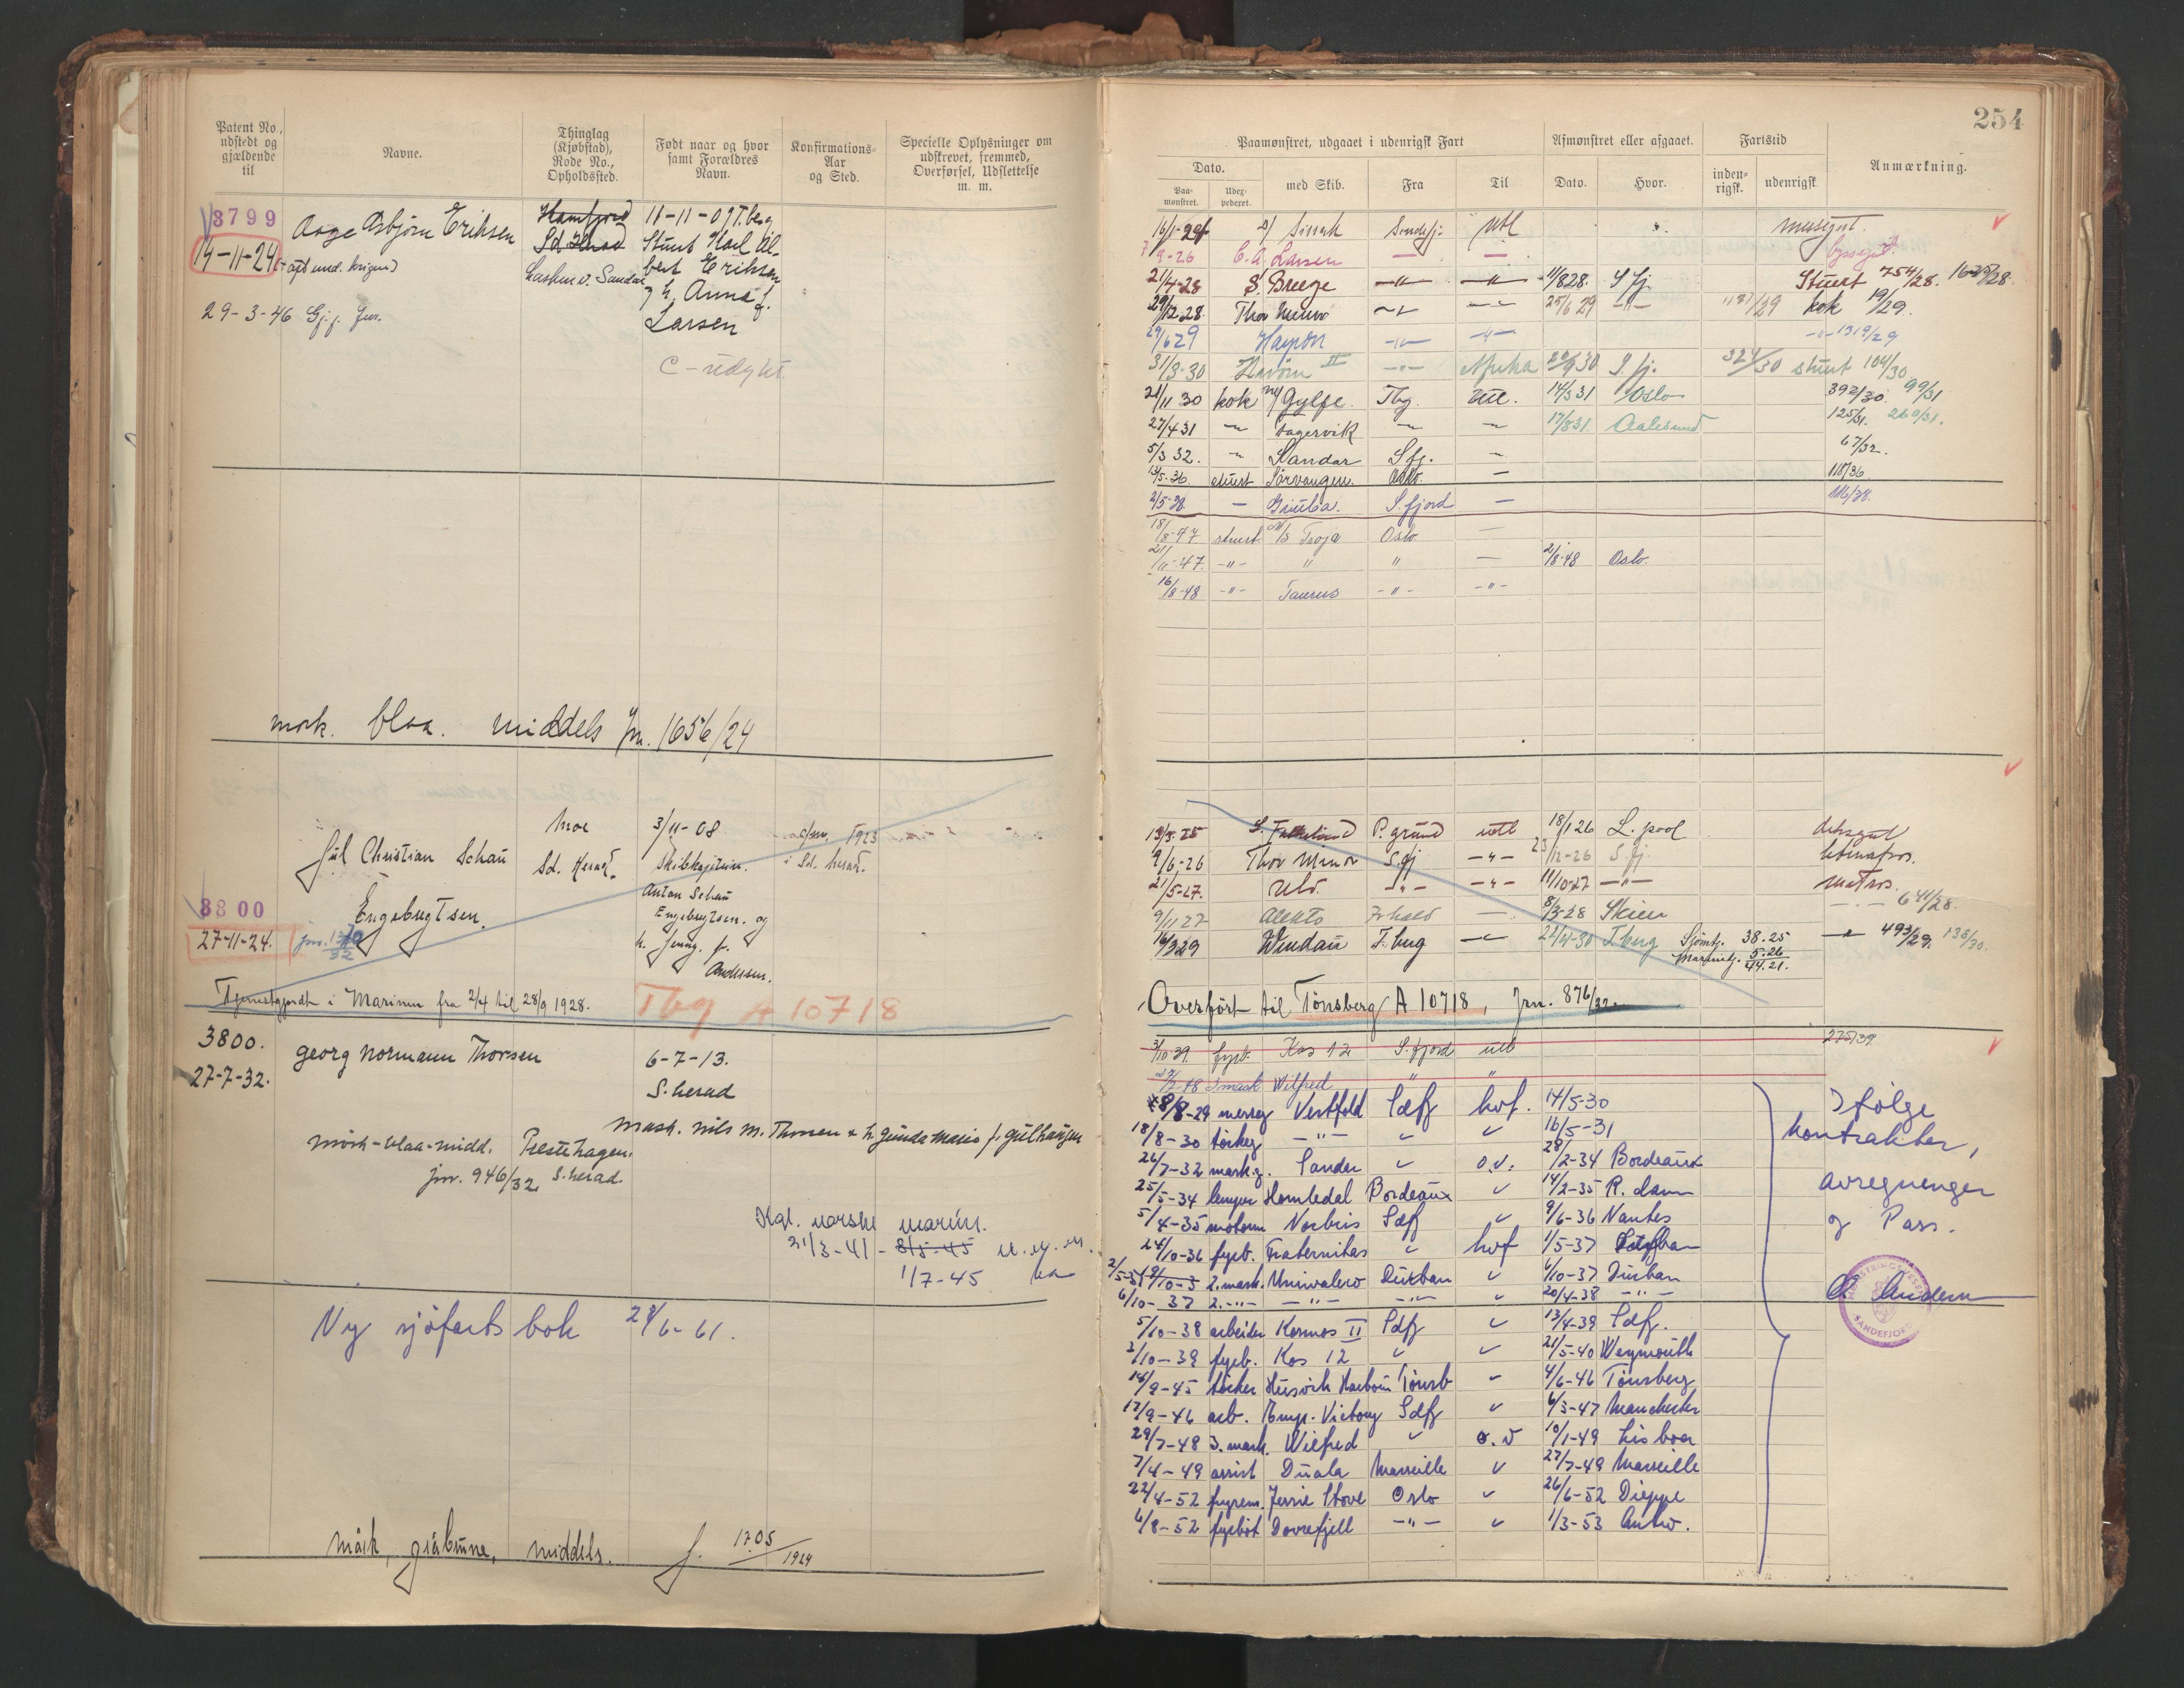 Patent No.
udstedt og
gjældende
til
Navne.
Thinglag
(Kjøbstad),
Rode No.,
Opholdssted.
Født naar og hvor
samt Forældres
Navn.
Konfirmations-
Aar
og Sted.
Specielle Oplysninger om
udskrevet, fremmed,
Overførsel, Udslettelse
m. m.
3799
14-11-24
Aage Asbjørn Eriksen
Sd. Herad
11-11-09 T.berg
Stuert Karl Al-
bert Eriksen
og h. Anna f.
Larsen
29-3-46
mørk. blaa. middels jrn. 1656/24
Jul Christian Schau
Engebrgtsen.
Moe
Sd. Herad.
3/11-08
Skibskaptein.
Anton Schau
Engebrgtsen. og
h. Jenny. f.
Andersen.
1923
i Sd. herad.
3800
27-11-24.
Tjenestgjordt i Marinen fra 2/4 til 28/9 1928.
Tbg A 10718
3800.
27-7-32.
Georg Normann Thorsen
6-7-13.
S.herad
Mask. Nils M. Thorsen & h. Gunda Marie f. Gulhaugen
mörk-blaa-midd. Prestehagen.
jnr. 946/32. S.herad.
Kgl. norske marine.
21/3-41 - 8/5-45
1/7-45
Ny sjøfartsbok 28/6-61.
mörk, gråbrune, middels. J. 1705/1924
254
Paamønstret, udgaaet i udenrigsk Fart
Afmønstret eller afgaaet.
Fartstid
Anmærkning.
Dato.
Paa-
mønstret.
Udex-
pederet.
med Skib.
Fra
Til
Dato.
Hvor.
inden-
rigsk.
udenrigsk.
16/1-25 Sandefj. Utl messegut.
7/9-26 C.A. Larsen — — byssegut.
21/4-28 S. Breege —"— —"— 11/828. S fj. Stuert 754/28. 1625/28.
29/12 28. Thor 25/6 29 —"— kok 19/29.
29/6 29 —"— —"— 1319/29
31/3-30 Havörn II —"— Afrika 20/9 30 S.fj. 324/30 stuert 104/30
21/11 30 kok Gylfe. Tbg. Utl. 14/3 31 Oslo 392/30. 99/31
27/4 31 — Fagervik — — 17/8 31. Aalesund 125/31. 260/31.
5/3 32. — Sandar Sfj. — 67/32.
13/5-36. stuert Sörvangen. Oslo. — 118/36
2/5-38 — S.fjord — 116/38.
18/8-47 stuert M/S Troja Oslo —
21/11-47. -"- " " — 2/8-48 Oslo.
16/8-48 -"- Taurus -"- -"-
13/3-25 P.grund utl 18/1 26 L.pool dæksgut
9/6-26 Thor Minor S.fj —"— 23/12-26 S.fj.
21/5-27. —"— —"— 11/10-27 —"— matros.
9/11 27 Alekto — 8/3-28 Skien 641/28.
16/3 29 Windau T.berg — 22/4-30 T.berg Sjömtj. 38.25 493/29. 138/30.
Marinetj. 5.26
44.21.
Overfört til Tönsberg A 10718, Jrn. 876/32.
3/10 39. fyrb. Kos 12 S.fjord utl 275/39
3 mask Wilfred " "
8/8-29 messeg Vestfold Sdfj hvf. 14/5-30
18/8-30 —"— 16/5-31
26/7-32 Sandar o.v. 28/2-34 Bordeaux
25/5-34 lemper Homledal Bordeaux 14/2-35 R.dam
5/4-35 Norbris Sdfj 9/6-36 Nantes
24/10-36 fyrb. Fraternitas hvf 1/5-37
2. mask. Uniwaleco Durban 6/10-37 Durban
6/10-37 2. -"- —"— -"- 20/4-38 -"-
5/10-38 arbeider Kosmos II Sdfj 13/4-39 Sdfj.
3/10-39 fyrb. Kos 12 21/5-40 Weymouth
14/9-45 Husvik Harbour Tönsb 4/6-46 Tönsberg
17/9-46 arb. Emp. Victory Sdfj 6/3-47 Manchester
29/7-48 3. mask. Wilfred o.v 10/1-49 Lisboa
7/4-49 assist Duala Marseille 27/7-49 Marseille
22/4-52 fyrem. Jessie Stove Oslo 26/6-52 Dieppe
6/8-52 fyrböt Dovrefjell —"— 1/3-53 Antw.
Ifølge
kontrakter,
avregninger
og Pass.
SANDEFJORD